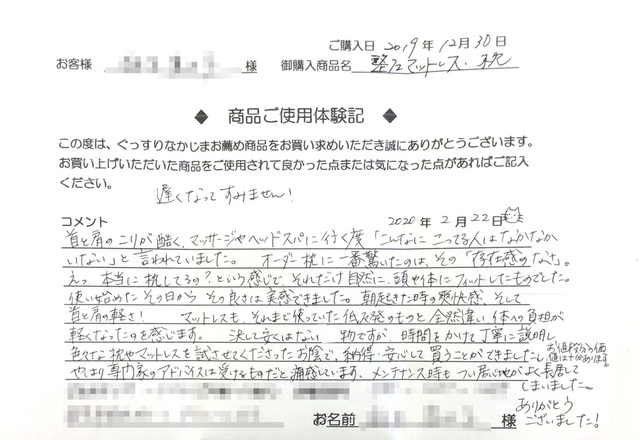 ご購入日 2019年12月30日
お客様 様 御購入商品名 整圧マットレス・枕
◆ 商品ご使用体験記 ◆
この度は、ぐっすりなかじまお薦め商品をお買い求めいただき誠にありがとうございます。
お買い上げいただいた商品をご使用されて良かった点または気になった点があればご記入
ください。
遅くなってすみません！
コメント 2020年2月22日
首と肩のこりが酷く、マッサージやヘッドスパに行く度「こんなにこってる人はなかなか
いない」と言われていました。 オーダー枕に一番驚いたのは、その「存在感のなさ」。
えっ、本当に枕してるの？という感じで、それだけ自然に、頭や体にフィットしたものでした。
使い始めたその日から その良さは実感できました。朝起きた時の爽快感、そして
首と肩の軽さ！ マットレスも、それまで使っていた低反発のものと全然違い体への負担が
軽くなったのを感じます。 決して安くはない 物ですが、時間をかけて丁寧に説明し
色々な枕やマットレスを試させてくださったお陰で、納得・安心して買うことができましたし、
お値段分の価
値は十分あります。
やっぱり専門家のアドバイスは受けるものだと痛感しています。メンテナンス時も つい居心地がよく長居して
しまいました。
ありがとう
ございました！
お名前 様